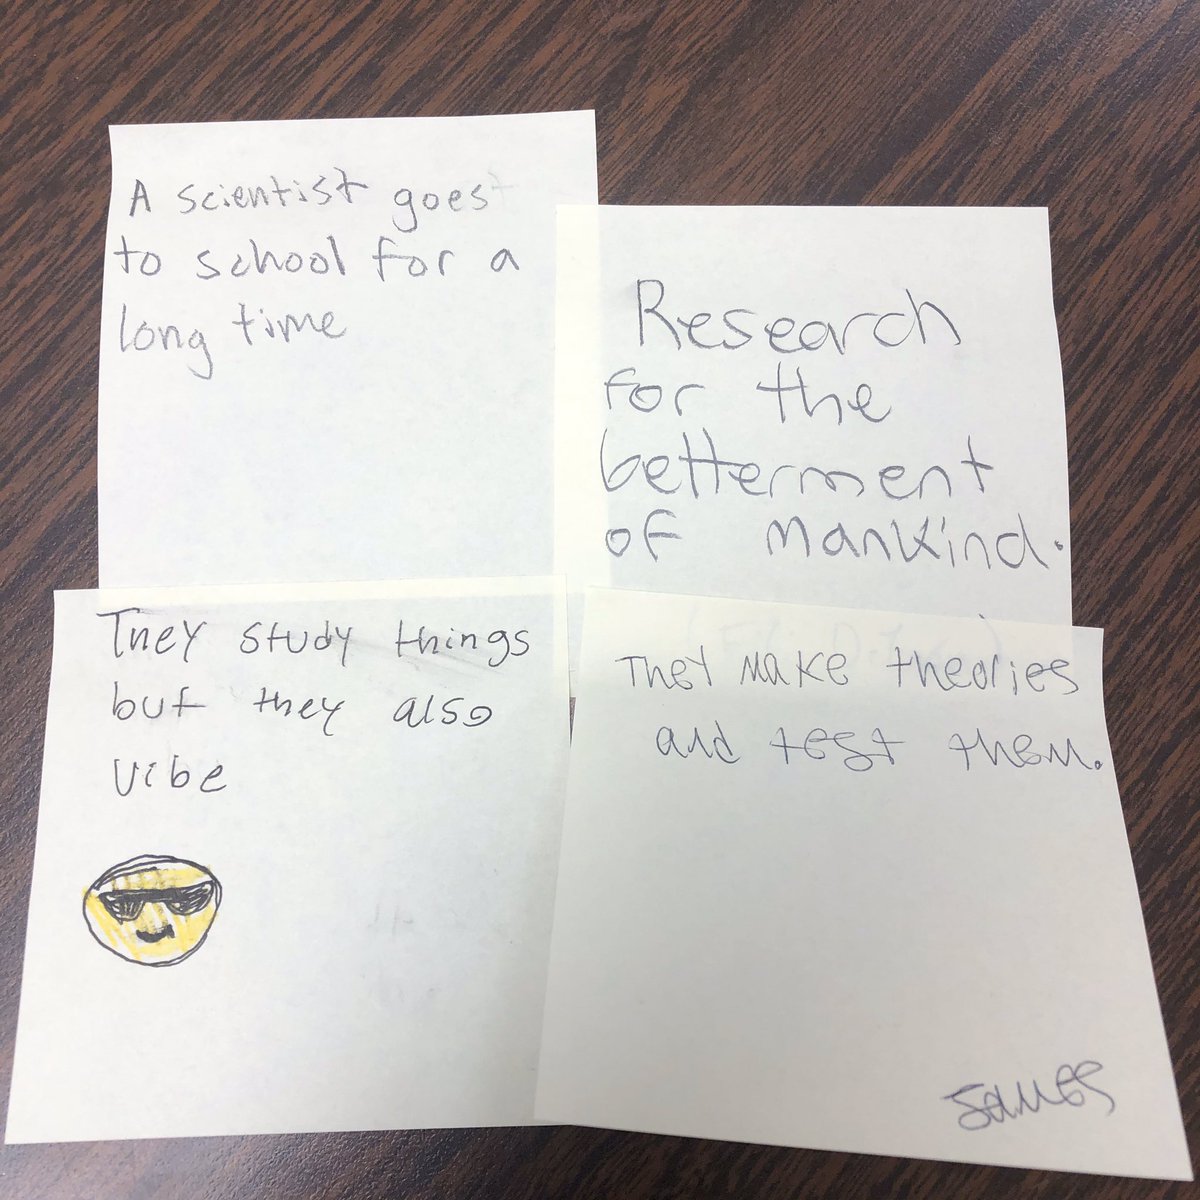 A scientist goes
to school for a
long time
Research
for the
betterment
of mankind.
They study things
but they also
vibe
They make theories
and test them.
James